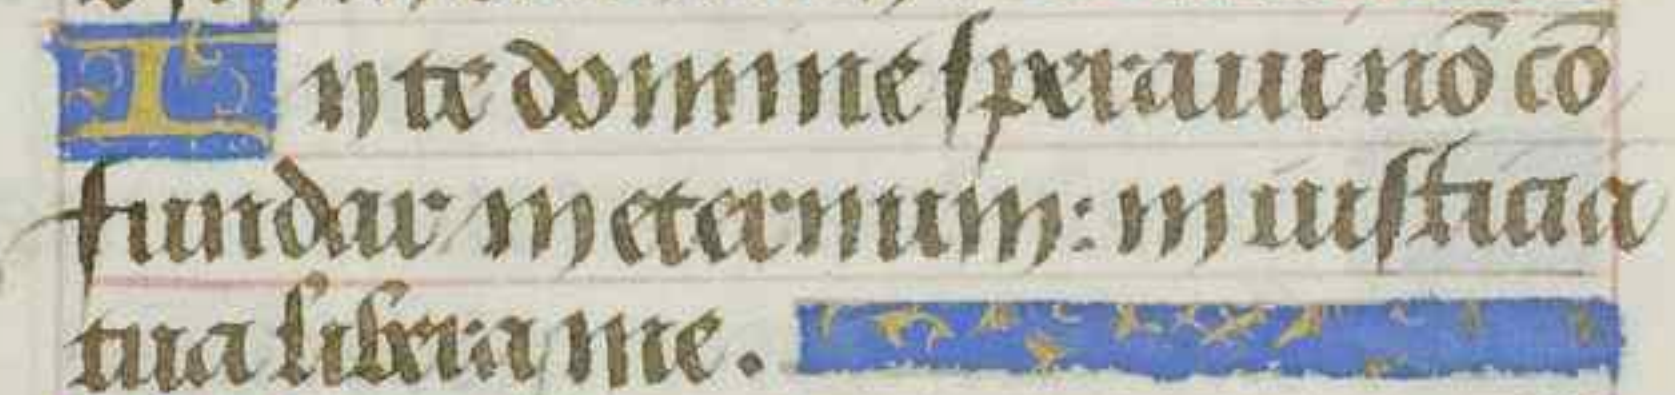 In te domine speraui nō cō
fundar in eternum: in iusticia
tua libera me.